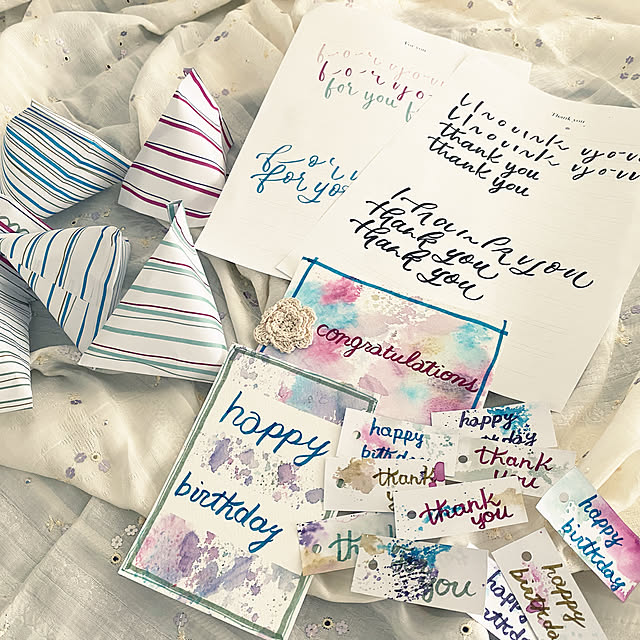 for you
for you
for you
for you
for you
Thank you
thank you
thank you
thank you
thank you
thank you
thank you
thank you
congratulations
happy
birthday
happy
birthday
happy
birthday
thank
you
thank
you
thank
you
you
happy
birthday
happy
birthday
happy